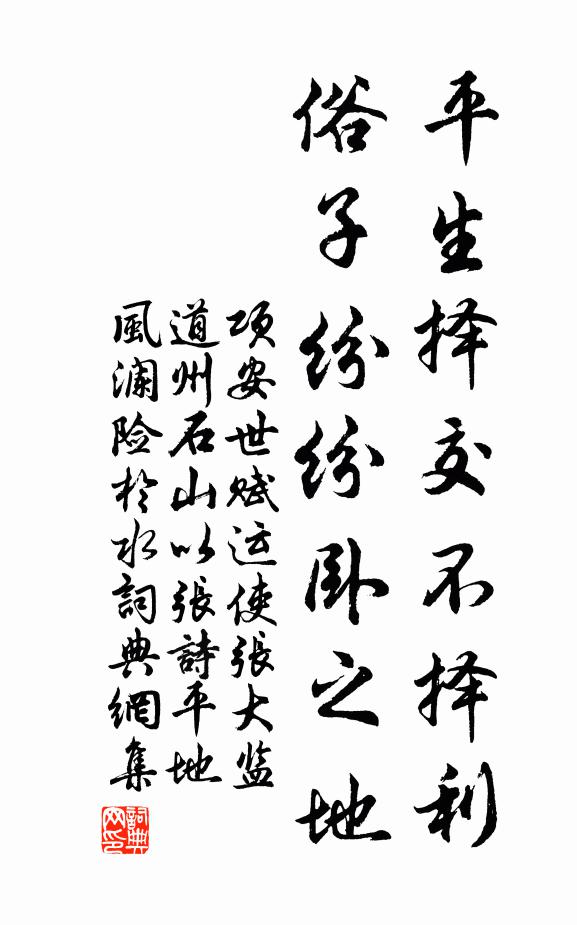 平生择交不择利
俗子纷纷卧之地
项安世赋运使张大监
道州石山以張詩平地
風澜险於水詞典網集
詞典网印